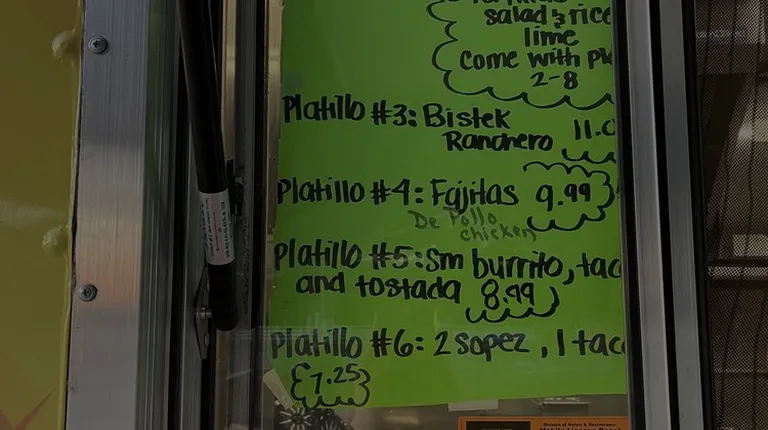 salad & rice
lime
come with
2-8
Platillo #3: Bistek
Ranchero 11.0
Platillo #4: Fajitas 9.99
De Pollo
chicken
Platillo #5: Sm burrito, tac
and tostada 8.99
Platillo #6: 2 sopez, 1 tac
7.25
Division of Hotels & Restaurants